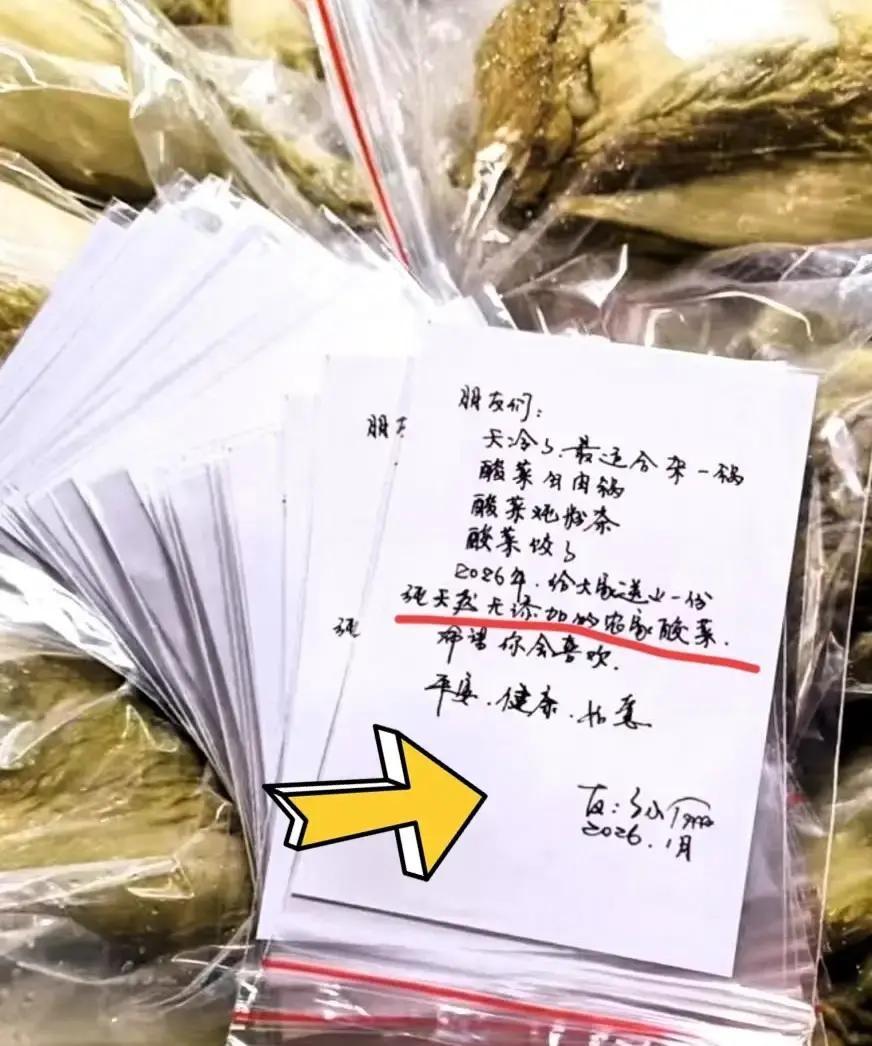 朋友们:
天冷了.最适合来一锅
酸菜白肉锅
酸菜炖粉条
酸菜饺子
2026年.给大家送上一份
纯天然无添加的农家酸菜.
希望你会喜欢.
平安.健康.如意
友:
2026.1月
朋友
纯